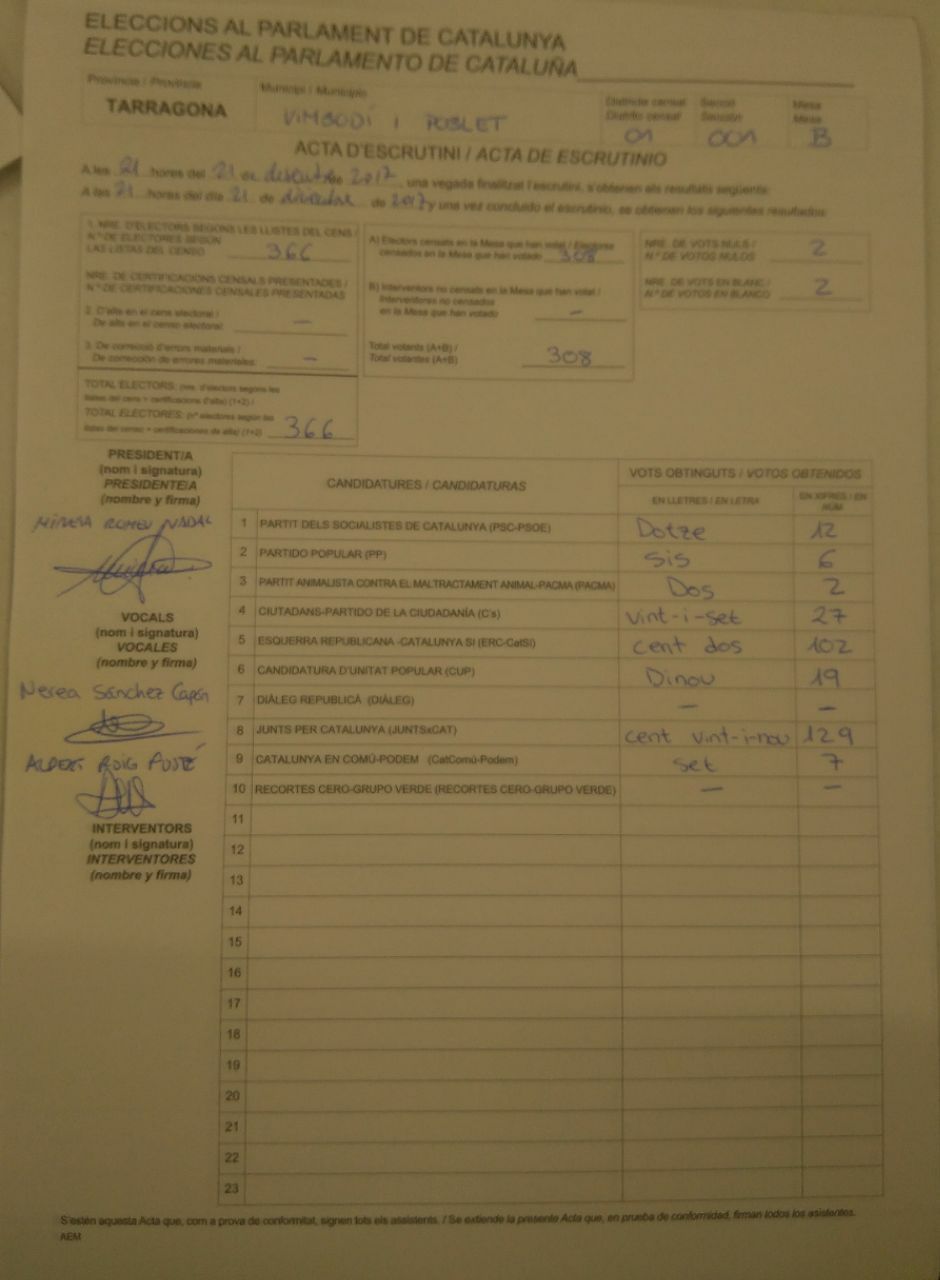 ELECCIONS AL PARLAMENT DE CATALUNYA
ELECCIONES AL PARLAMENTO DE CATALUÑA
Província / Provincia
TARRAGONA
Municipi / Municipio
VIMBODÍ i POBLET
Districte censal
Distrito censal
01
Secció
Sección
001
Mesa
Mesa
B
ACTA D'ESCRUTINI / ACTA DE ESCRUTINIO
A les 21 hores del 21 de desembre 2017, una vegada finalitzat l'escrutini, s'obtenen els resultats següents:
A las 21 horas del día 21 de diciembre de 2017 y una vez concluido el escrutinio, se obtienen los siguientes resultados:
1. NRE. D'ELECTORS SEGONS LES LLISTES DEL CENS /
N.º DE ELECTORES SEGÚN
LAS LISTAS DEL CENSO 366
NRE. DE CERTIFICACIONS CENSALS PRESENTADES /
N.º DE CERTIFICACIONES CENSALES PRESENTADAS
2. D'alta en el cens electoral /
De alta en el censo electoral: —
3. De correcció d'errors materials /
De corrección de errores materiales: —
TOTAL ELECTORS: (nre. d'electors segons les
llistes del cens + certificacions d'alta) (1+2) /
TOTAL ELECTORES: (nº electores según las
listas del censo + certificaciones de alta) (1+2) 366
A) Electors censats en la Mesa que han votat / Electores
censados en la Mesa que han votado 308
B) Interventors no censats en la Mesa que han votat /
Interventores no censados
en la Mesa que han votado —
Total votants (A+B) /
Total votantes (A+B) 308
NRE. DE VOTS NULS /
N.º DE VOTOS NULOS 2
NRE. DE VOTS EN BLANC /
N.º DE VOTOS EN BLANCO 2
PRESIDENT/A
(nom i signatura)
PRESIDENTE/A
(nombre y firma)
MIREIA ROMEU NADAL
VOCALS
(nom i signatura)
VOCALES
(nombre y firma)
Nerea Sánchez Capón
ALBERT ROIG
INTERVENTORS
(nom i signatura)
INTERVENTORES
(nombre y firma)
CANDIDATURES / CANDIDATURAS
VOTS OBTINGUTS / VOTOS OBTENIDOS
EN LLETRES / EN LETRA
EN XIFRES / EN NÚM
1 PARTIT DELS SOCIALISTES DE CATALUNYA (PSC-PSOE) Dotze 12
2 PARTIDO POPULAR (PP) Sis 6
3 PARTIT ANIMALISTA CONTRA EL MALTRACTAMENT ANIMAL-PACMA (PACMA) Dos 2
4 CIUTADANS-PARTIDO DE LA CIUDADANÍA (C's) Vint-i-set 27
5 ESQUERRA REPUBLICANA -CATALUNYA SI (ERC-CatSI) cent dos 102
6 CANDIDATURA D'UNITAT POPULAR (CUP) Dinou 19
7 DIÀLEG REPUBLICÀ (DIÀLEG) — —
8 JUNTS PER CATALUNYA (JUNTSxCAT) cent vint-i-nou 129
9 CATALUNYA EN COMÚ-PODEM (CatComú-Podem) set 7
10 RECORTES CERO-GRUPO VERDE (RECORTES CERO-GRUPO VERDE) — —
11
12
13
14
15
16
17
18
19
20
21
22
23
S'estén aquesta Acta que, com a prova de conformitat, signen tots els assistents. / Se extiende la presente Acta que, en prueba de conformidad, firman todos los asistentes.
AEM